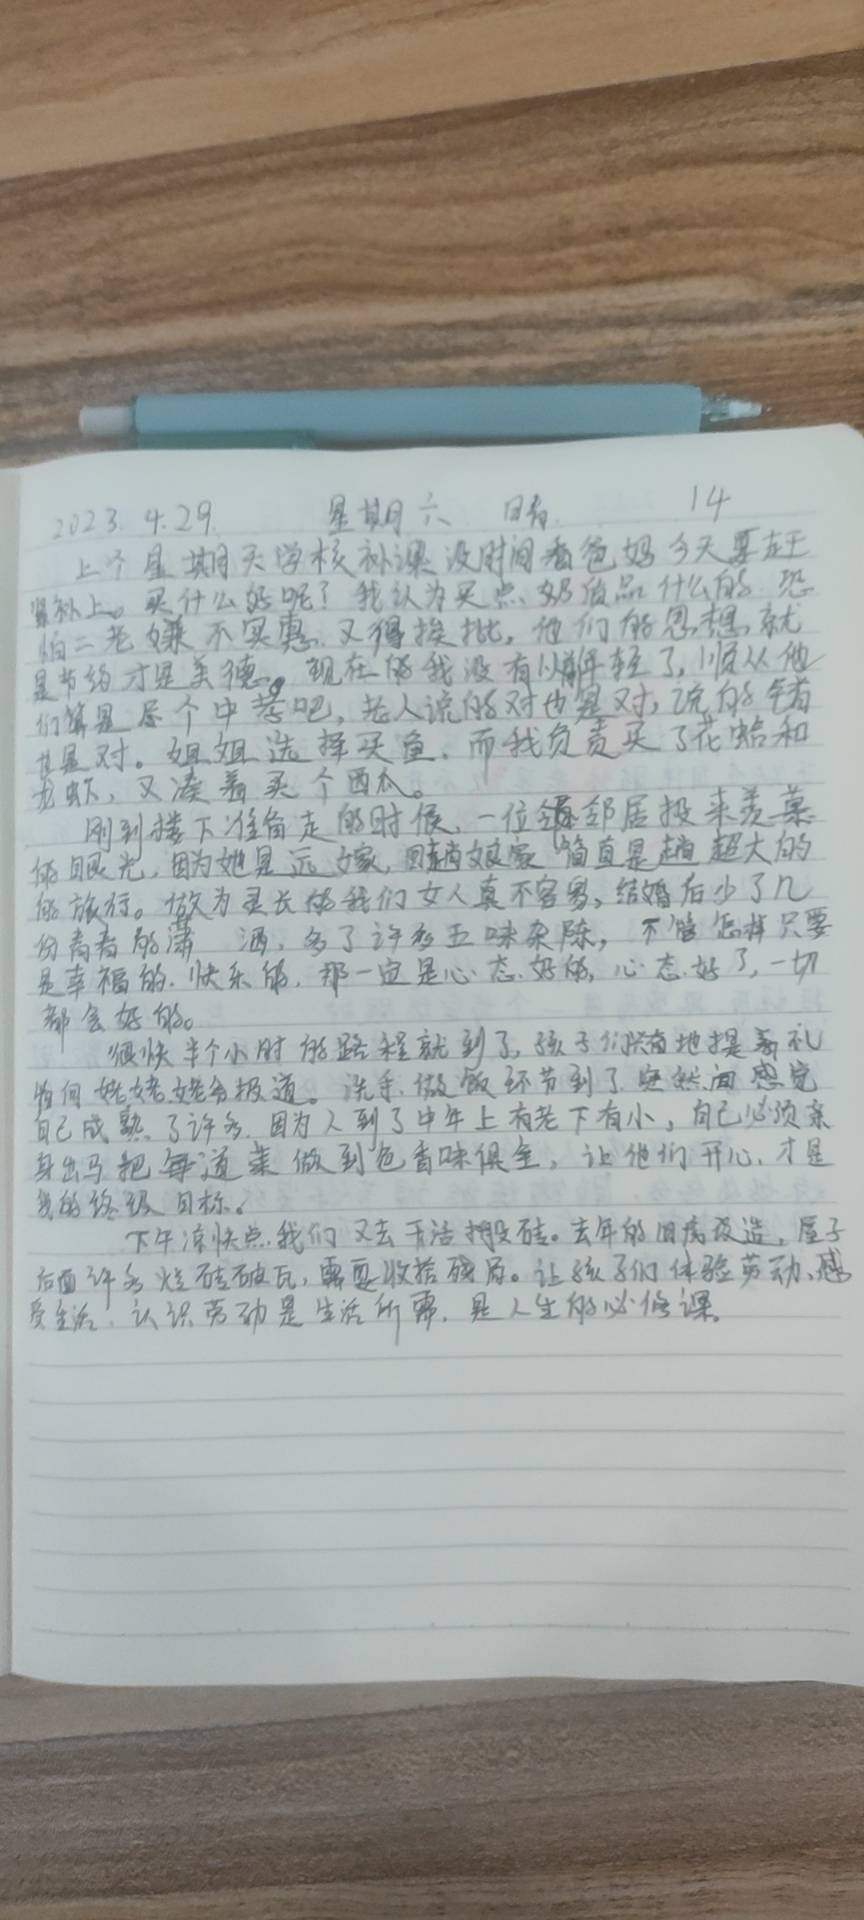 2023. 4.29. 星期六 晴 14
上个星期天学校补课没时间看爸妈今天要赶
紧补上。买什么好呢？我认为买点奶值品什么的 恐
怕二老嫌不实惠.又得挨批,他们的思想就
是节约才是美德。现在的我没有以前年轻了,顺从他
们算是尽个中孝吧,老人说的对也是对,说的错
也是对。姐姐选择买鱼.而我负责买了花蛤和
龙虾,又凑着买个西瓜。
刚到楼下准备走的时候,一位邻居投来羡慕
的眼光,因为她是远嫁,回趟娘家简直是超大的
的旅行。做为家长的我们女人真不容易,结婚后少了几
份青春的潇洒,多了许多五味杂陈,不管怎样只要
是幸福的.快乐的.那一定是心态好的,心态好了,一切
都会好的。
很快半个小时的路程就到了,孩子们兴奋地提着礼
物向姥姥姥爷报道。洗手.做饭环节到了突然间感觉
自己成熟了许多.因为人到了中年上有老下有小,自己必须亲
身出马把每道菜做到色香味俱全,让他们开心.才是
我的终级目标。
下午凉快点.我们又去干活搬砖。去年的旧房改造,屋子
后面许多烂砖破瓦,需要收拾残局。让孩子们体验劳动、感
受生活.认识劳动是生活所需.是人生的必修课。